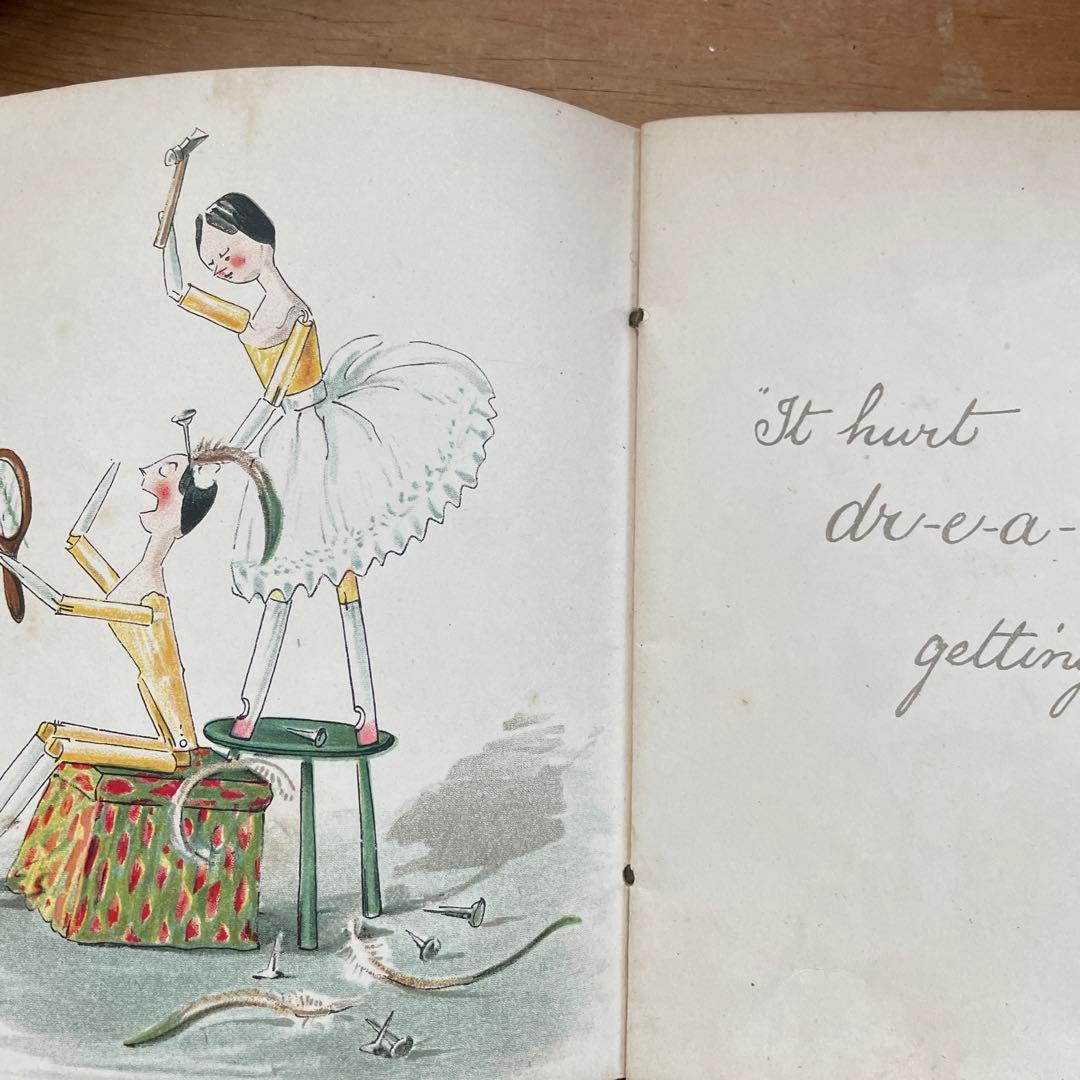 "It hurt
dr-e-a-
getting